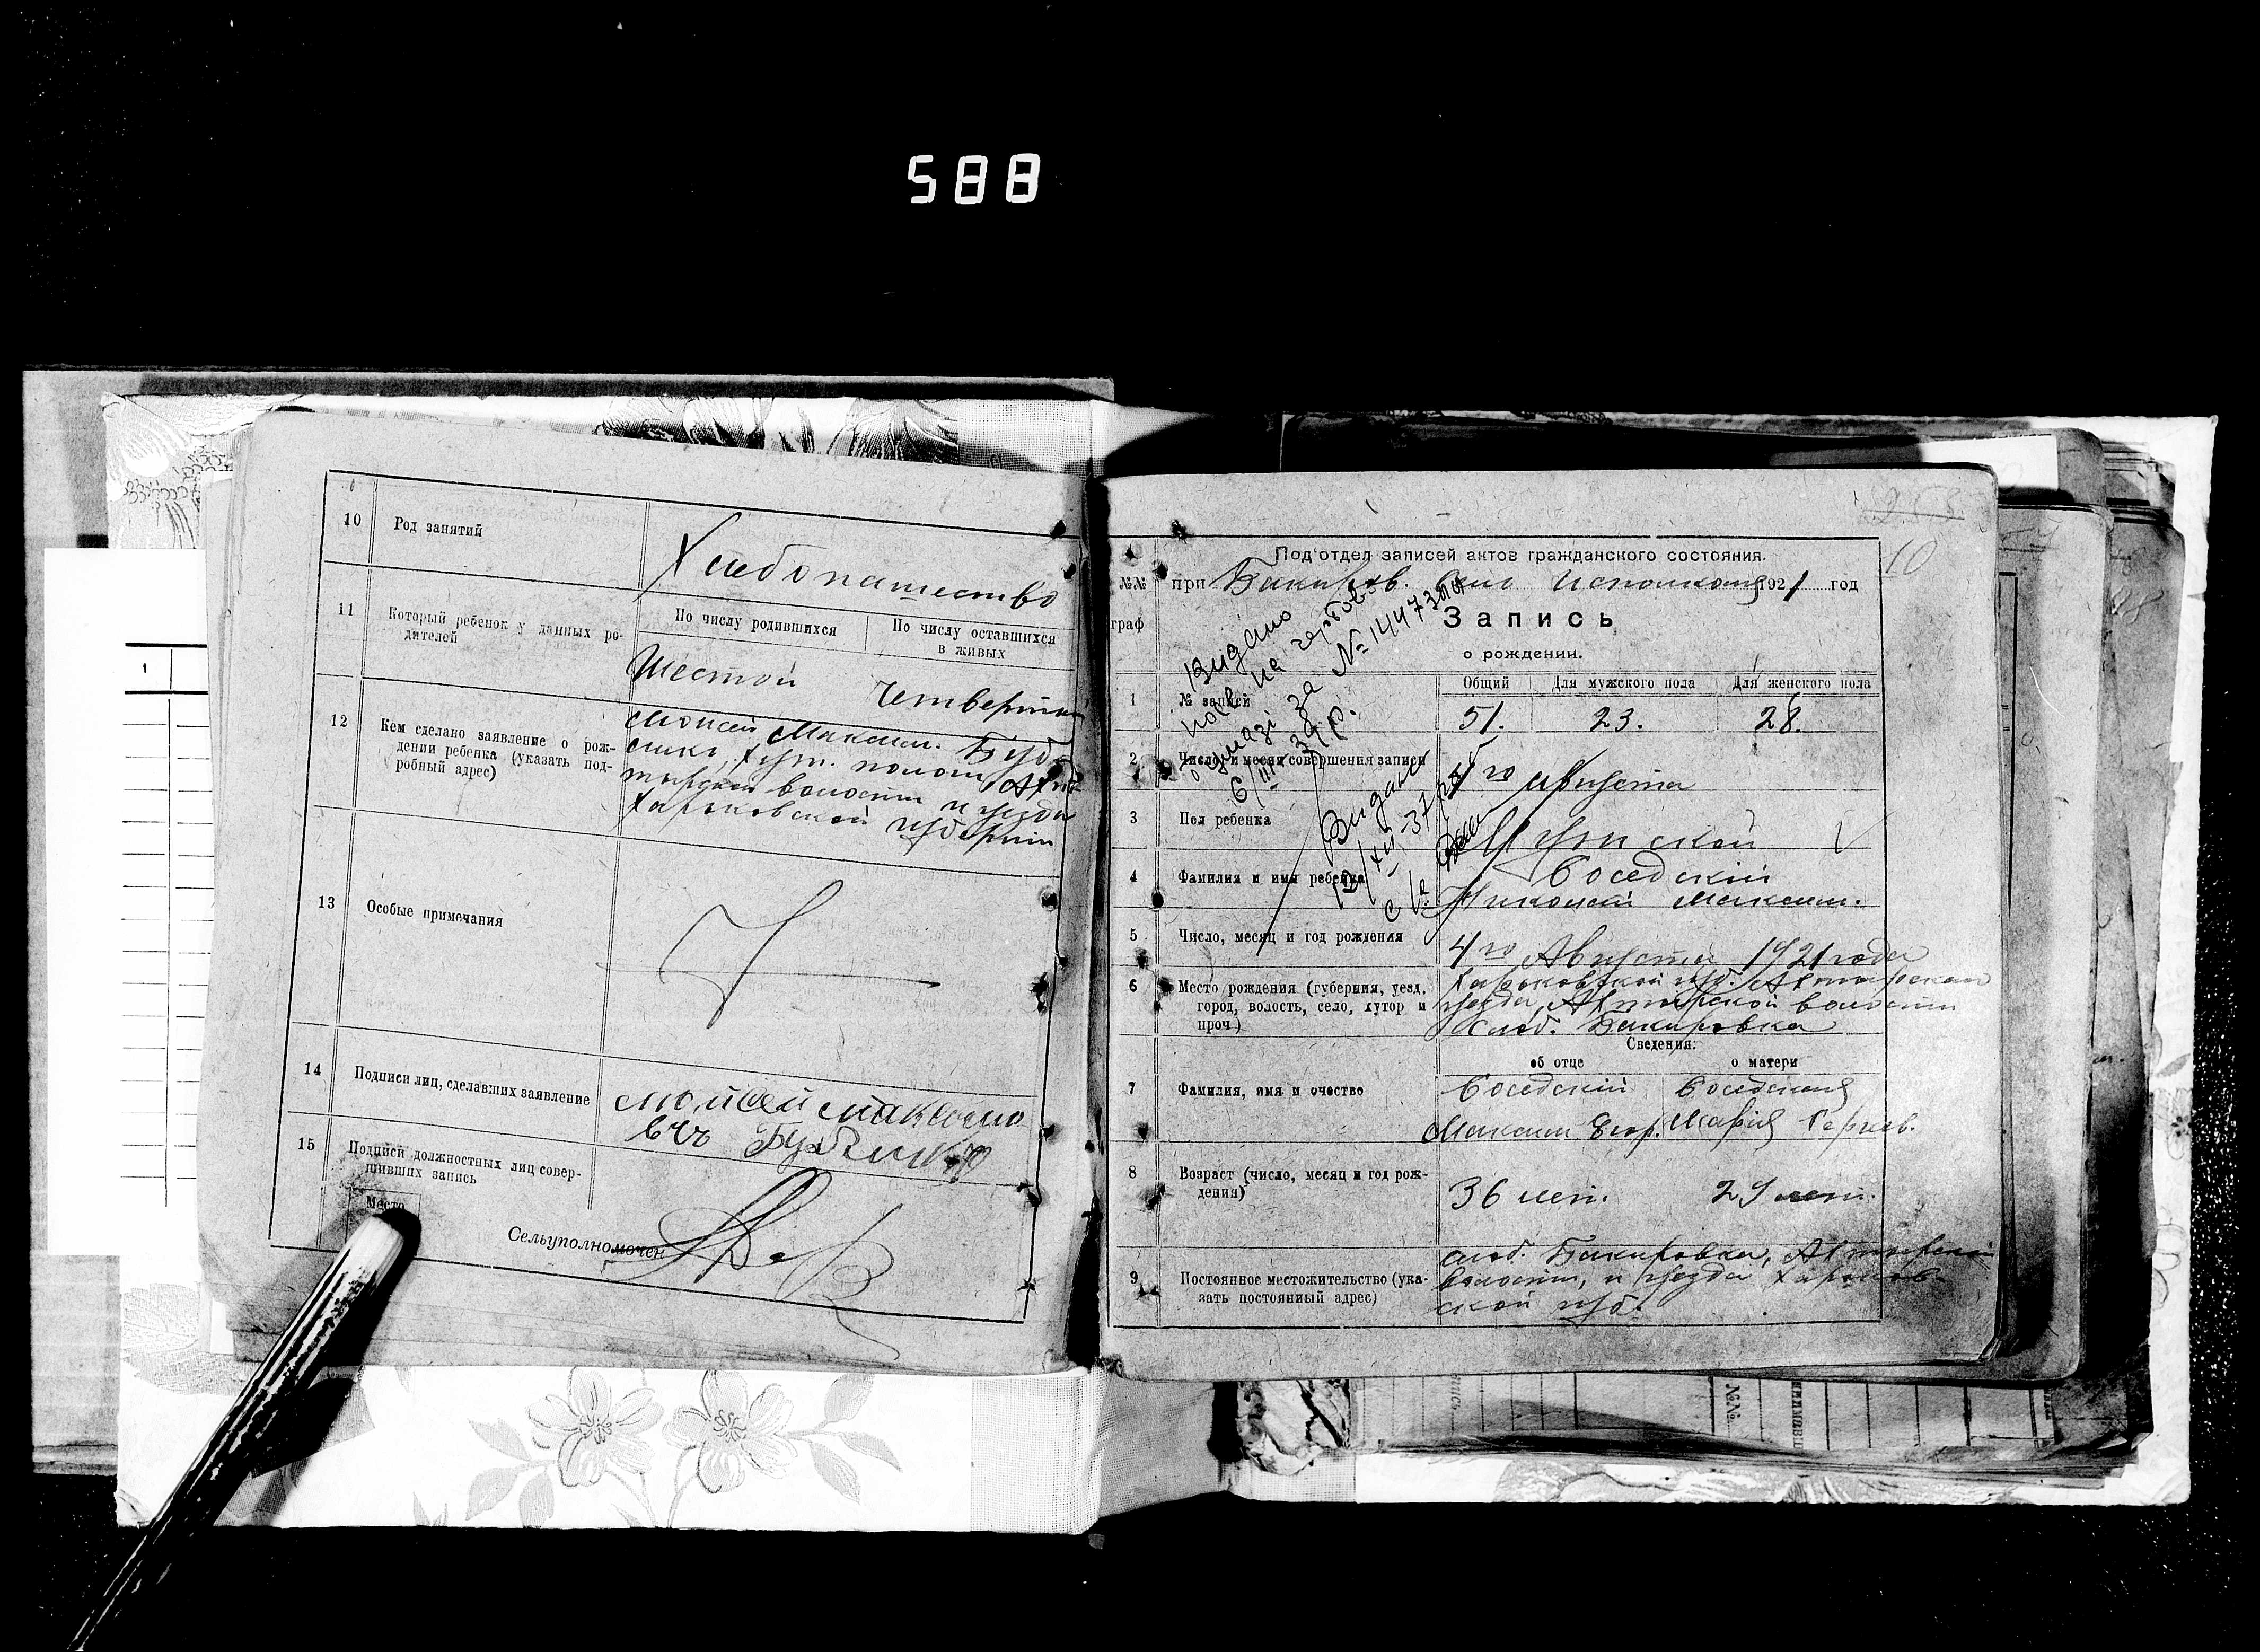 588
10 Род занятий
Хлебопашество
11 Который ребенок у данных ро-
дителей
По числу родившихся По числу оставшихся
в живых
Шестой Четвертый
12 Кем сделано заявление о рож-
дении ребенка (указать под-
робный адрес)
Моисей Максим.
волости и уезда
Харьковской губернии
13 Особые примечания
14 Подписи лиц, сделавших заявление
15 Подписи должностных лиц совер-
шивших запись
Место
Сельуполномочен
1
253
10
Под'отдел записей актов гражданского состояния.
№№ при Бакиров. исполкоме 1921 год
граф
Запись
о рождении.
Видано
на
за № 144730
6/III 39 р.
Видано
1 № записи
Общий Для мужского пола Для женского пола
51. 23. 28.
2 Число и месяц совершения записи
го Августа
3 Пол ребенка
Мужской
4 Фамилия и имя ребенка
Соседский
Николай Максим.
5 Число, месяц и год рождения
4го Августа 1921 года
6 Место рождения (губерния, уезд,
город, волость, село, хутор и
проч.)
Харьковской губ. Ахтырскаго
уезда, Ахтырской волости
слоб. Бакировка
Сведения:
об отце о матери
7 Фамилия, имя и очество
Соседский Соседская
Максим Егор. Мария Сергеев.
8 Возраст (число, месяц и год рож-
дения)
36 лет. 29 лет.
9 Постоянное местожительство (ука-
зать постоянный адрес)
слоб. Бакировка, Ахтырской
волости, и уезда Харьков-
ской губ.